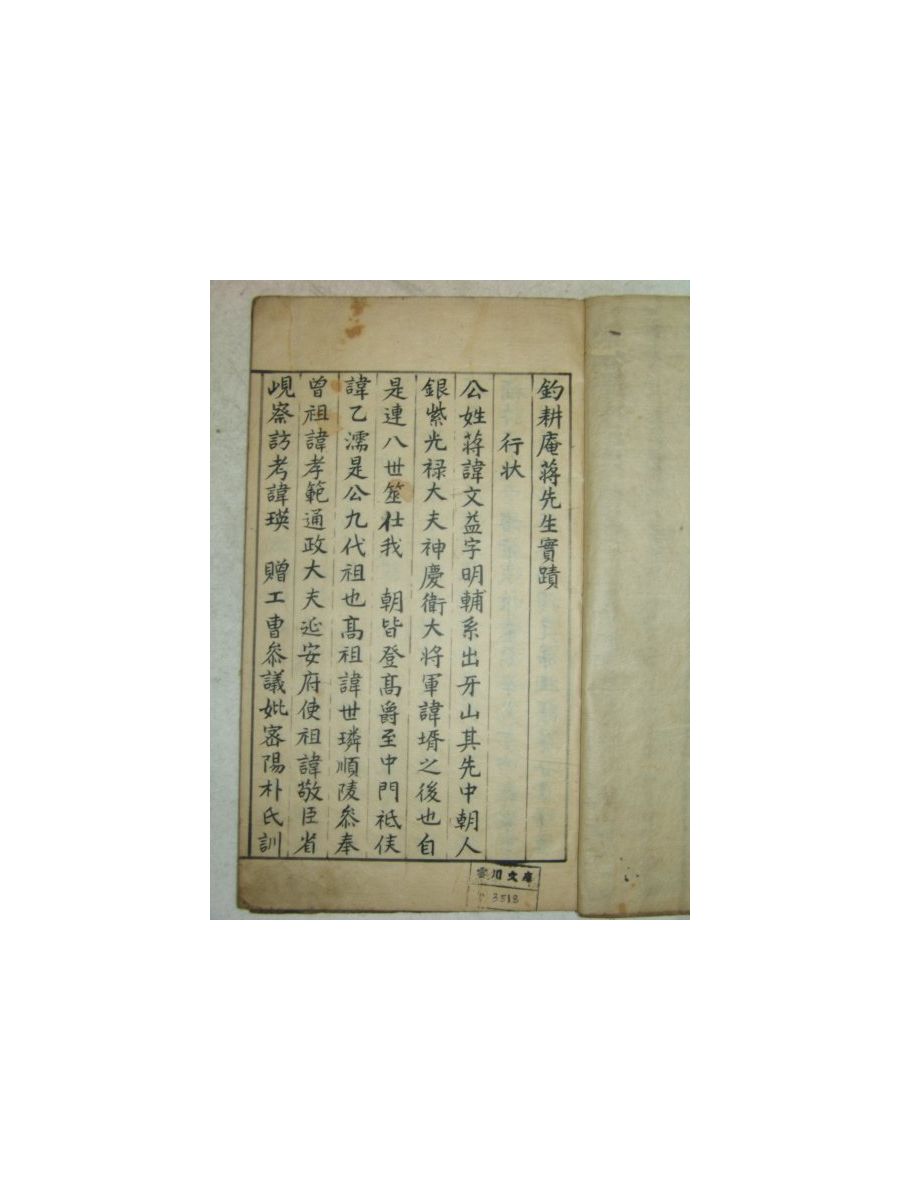 釣耕庵蔣先生實蹟
行状
公姓蔣諱文益字明輔系出牙山其先中朝人
銀紫光禄大夫神慶衛大将軍諱壻之後也自
是連八世筮仕我 朝皆登髙爵至中門祗侯
諱乙濡是公九代祖也髙祖諱世璘順陵叅奉
曾祖諱孝範通政大夫延安府使祖諱敬臣省
峴察訪考諱瑛 贈工曹叅議妣密陽朴氏訓
川文庫
3518